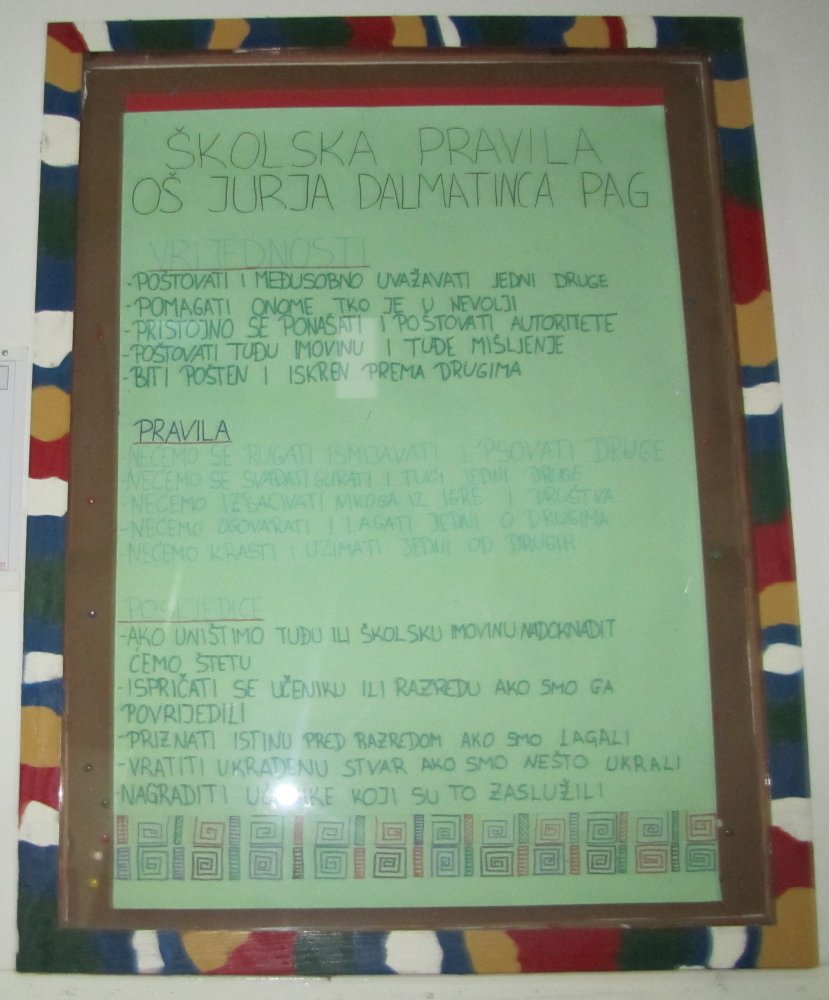 ŠKOLSKA PRAVILA
OŠ JURJA DALMATINCA PAG
VRIJEDNOSTI
-POŠTOVATI I MEĐUSOBNO UVAŽAVATI JEDNI DRUGE
-POMAGATI ONOME TKO JE U NEVOLJI
-PRISTOJNO SE PONAŠATI I POŠTOVATI AUTORITETE
-POŠTOVATI TUĐU IMOVINU I TUĐE MIŠLJENJE
-BITI POŠTEN I ISKREN PREMA DRUGIMA
PRAVILA
-NEĆEMO SE RUGATI ISMIJAVATI I PSOVATI DRUGE
-NEĆEMO SE SVAĐATI GURATI I TUĆI JEDNI DRUGE
-NEĆEMO IZBACIVATI NIKOGA IZ IGRE I DRUŠTVA
-NEĆEMO OGOVARATI I LAGATI JEDNI O DRUGIMA
-NEĆEMO KRASTI I UZIMATI JEDNI OD DRUGIH
POSLJEDICE
-AKO UNIŠTIMO TUĐU ILI ŠKOLSKU IMOVINU NADOKNADIT
ĆEMO ŠTETU
-ISPRIČATI SE UČENIKU ILI RAZREDU AKO SMO GA
POVRIJEDILI
-PRIZNATI ISTINU PRED RAZREDOM AKO SMO LAGALI
-VRATITI UKRAĐENU STVAR AKO SMO NEŠTO UKRALI
-NAGRADITI UČENIKE KOJI SU TO ZASLUŽILI